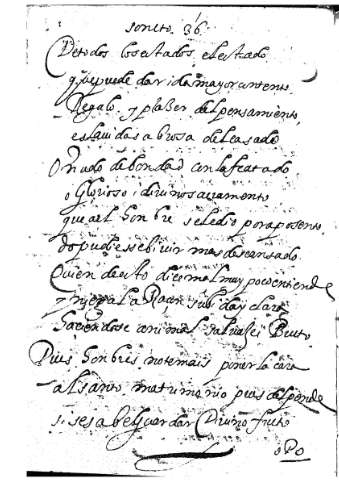 soneto. 36.
De todos los estados, el estado
q̃ se puede dar i da mayor contento
Regalo. y plazer del pensamiento,
es la vida sabrosa del casado
O nudo de bondad con la fee atado
o Glorioso i divino sacramento
que a el honbre se le dio por aposento
do pudiesse bivir mas descansado.
Quien de esto dice mal muy poco entiende
y niega la Raçon subida y clara
haciendose animal salvaje i Bruto
Pues honbres no temais poner la cara
al santo matrimonio pues depende
si se sabe Guardar Divino fruto